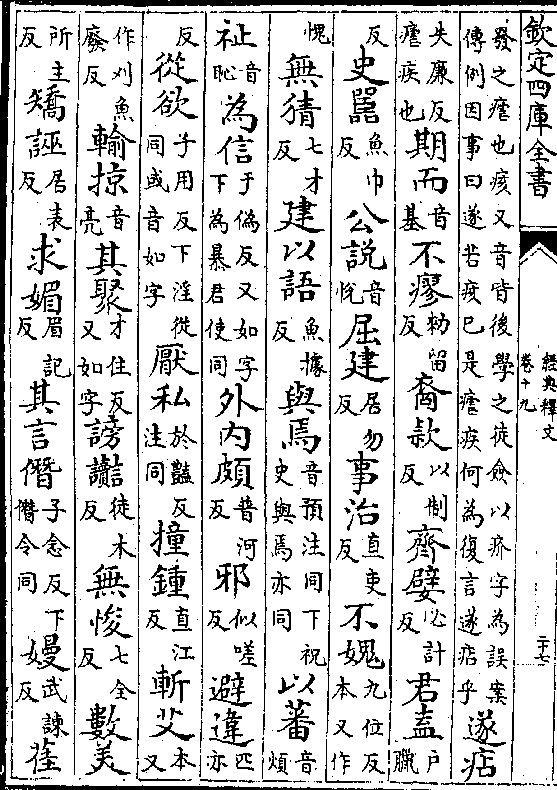 欽定四庫全書
經典釋文
卷十九
二十七
發之瘧也痎又音皆後學之徒僉以疥字為誤案傳例因事曰遂若痎已是瘧疾何為復言遂痁乎遂痁
失廉反瘧疾也期而音基不瘳勑留反裔款以制反齊嬖必計反君盍戶臘
反史嚚魚巾反公説音恱屈建居勿反事治直吏反不媿九位反本又作
愧無猜七才反建以語魚據反與焉音預注同下祝史與焉亦同以蕃音煩
祉音恥為信于偽反又如字下為暴君使同外内頗普河反邪似嗟反避違匹亦
反從欲子用反下淫從同或音如字厭私於豔反注同撞鍾直江反斬艾本又
作刈魚廢反輸掠音亮其聚才住反又如字謗讟徒木反無悛七全反數美
所主反矯誣居表反求媚眉記反其言僭子念反下僭令同嫚武諫反萑